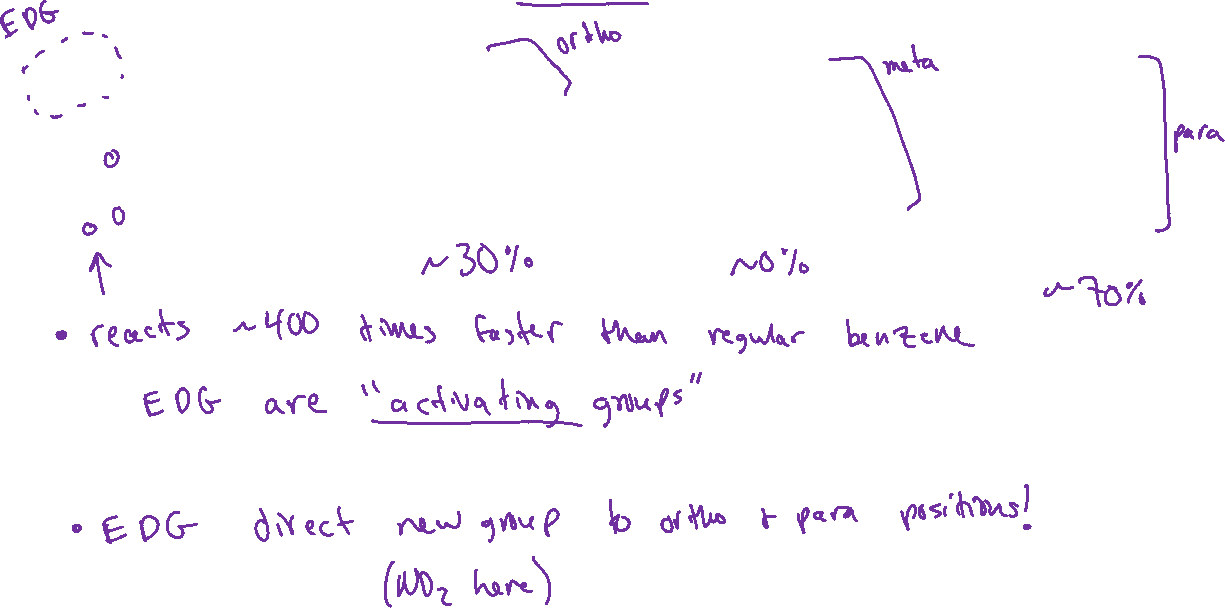 EDG
ortho
meta
para
~30%
~0%
~70%
• reacts ~400 times faster than regular benzene
EDG are "activating groups"
• EDG direct new group to ortho + para positions!
(NO2 here)